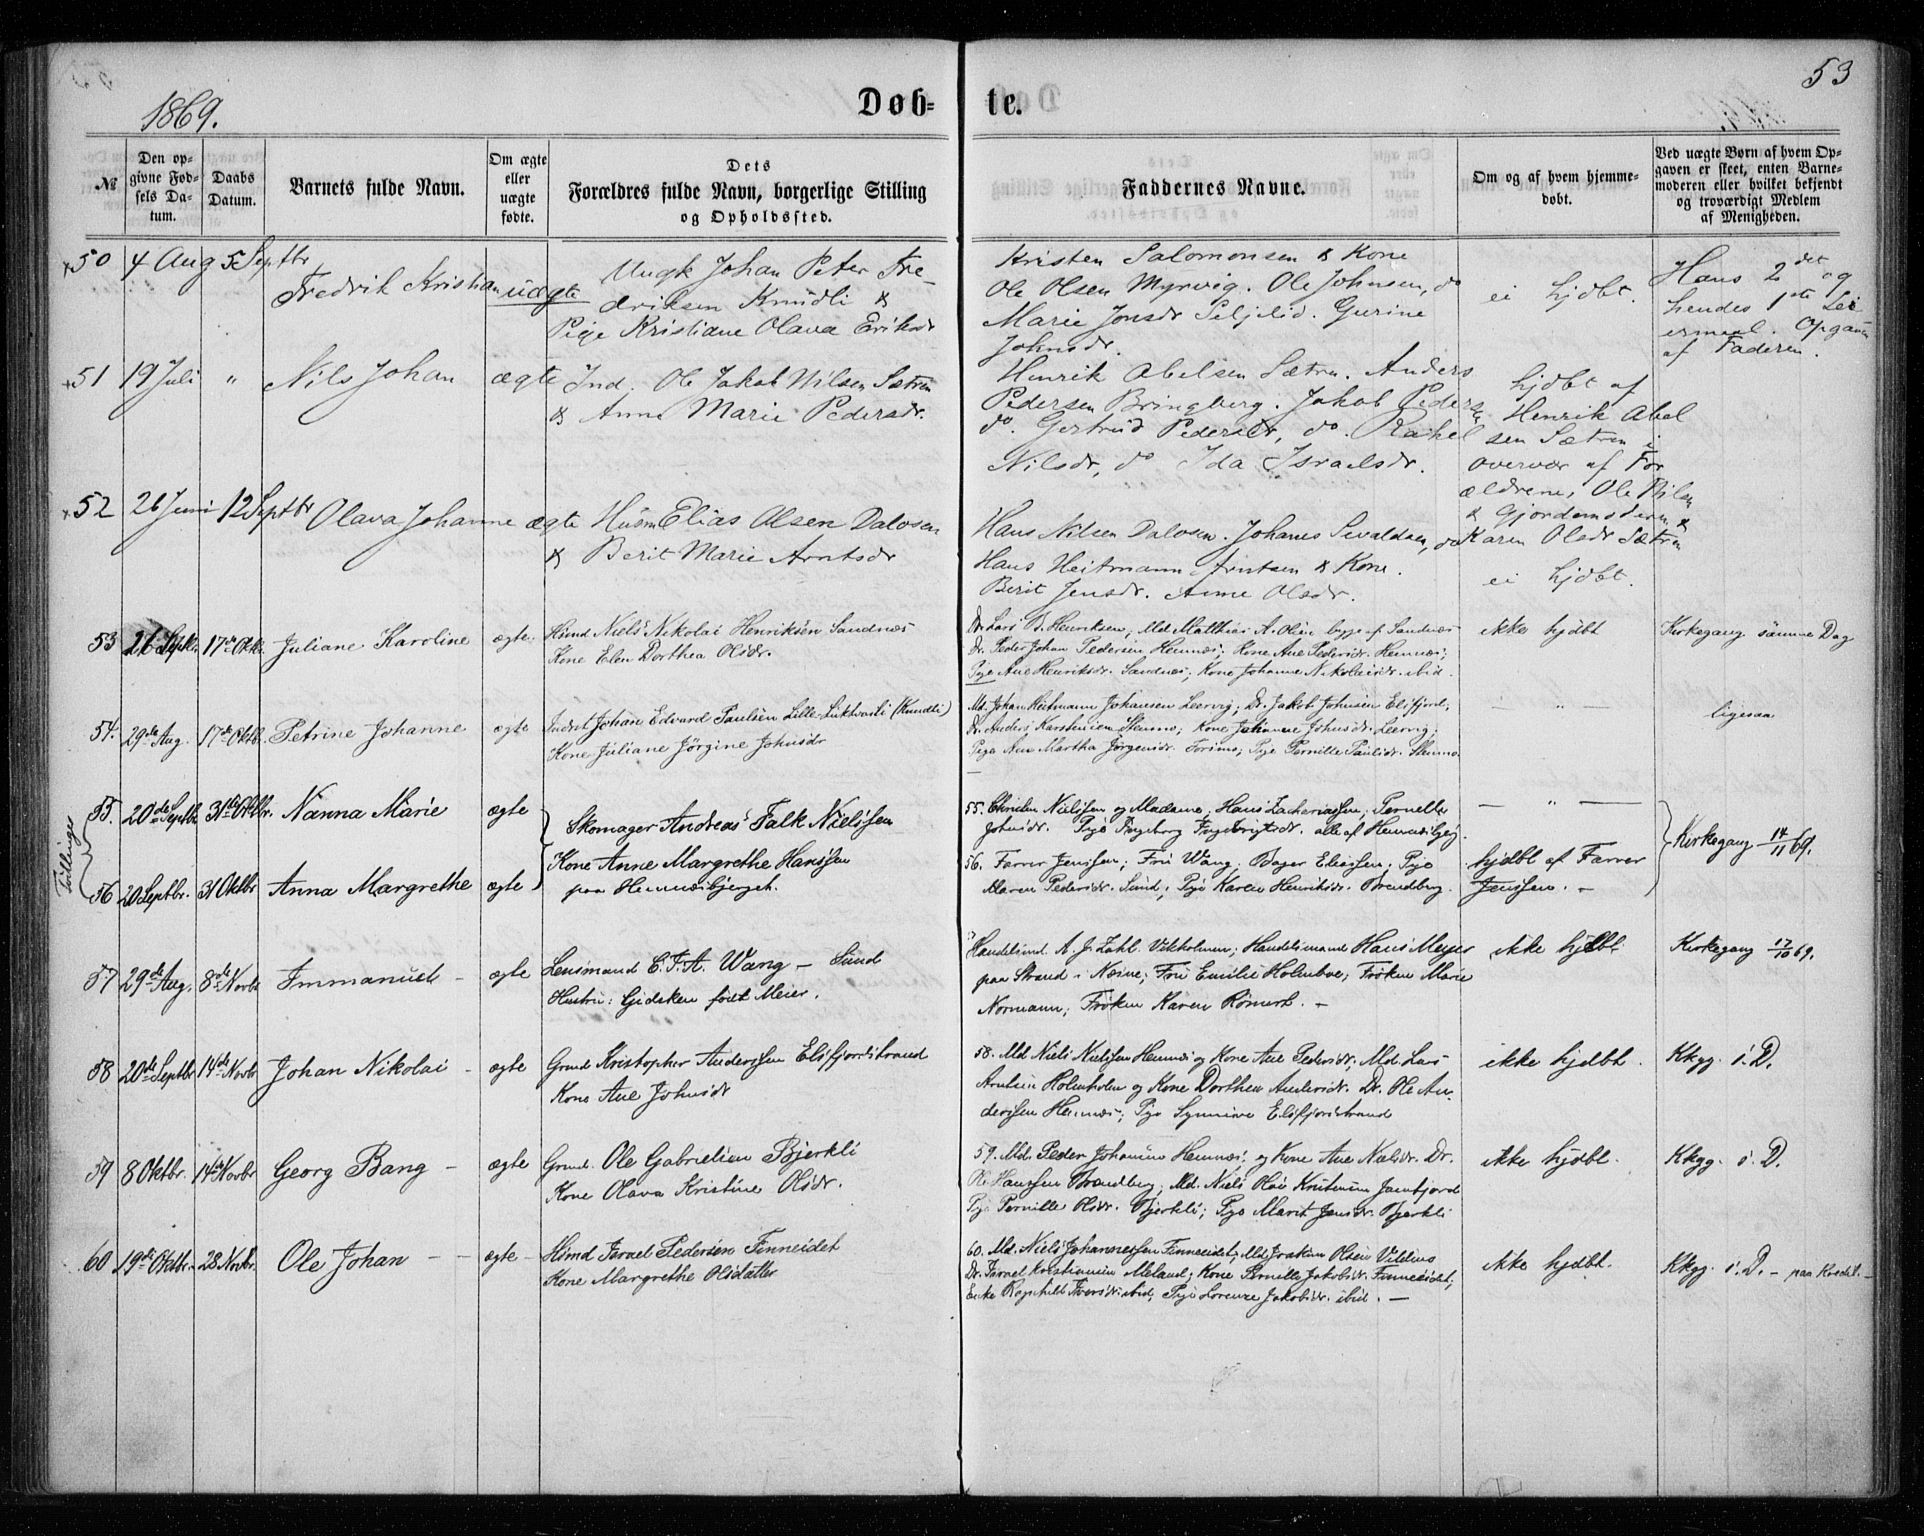 1869.
Døb-
te.
53
№
Den op-
givne Fød-
sels Da-
tum.
Daabs
Datum.
Barnets fulde Navn.
Om ægte
eller
uægte
fødte.
Dets
Forældres fulde Navn, borgerlige Stilling
og Opholdssted.
Faddernes Navne.
Om og af hvem hjemme-
døbt.
Ved uægte Børn af hvem Op-
gaven er skeet, enten Barne-
moderen eller hvilket bekjendt
og troværdigt Medlem
af Menigheden.
50 4 Aug 5 Septbr Fredrik Kristian uægte
Ungk Johan Peter Fre-
driksen Knudli &
Pige Kristiane Olava Eriksdr
Kristen Salomonsen & Kone
Ole Olsen Myrvig. Ole Johnsen, do
Marie Jonsdr Seljelid. Gurine
Johnsdr.
ei hjdbt.
Hans 2det og
hendes 1ste Lei
ermaal. Opgaven
af Faderen.
51 19 Juli " Nils Johan ægte
Ind. Ole Jakob Nilsen Sætren
& Anne Marie Pedersdr.
Henrik Abelsen Sætren. Anders
Pedersen Bringberg. Jakob Peders
do. Gertrud Pedersdr, do. Rakel
Nilsdr, do Ida Israelsdr.
hjdbt af
Henrik Abel
sen Sætren i
overvær af For
ældrene, Ole Nilsen
& Gjordemoderen &
Karen Olsdr Sætren
52 26 Juni 12 Septbr Olava Johanne ægte
Husm Elias Olsen Dalosen
& Berit Marie Arntsdr
Hans Nilsen Dalosen. Johanes Sevaldsen, do
Hans Heitmann Arntsen & Kone.
Berit Jensdr. Anne Olsdr.
ei hjdbt.
53 26 Septb. 17de Oktb. Juliane Karoline ægte.
Húsmd Niels Nikolai Henriksen Sandnæs
Kone Elen Dorthea Olsdr.
Dr. Lars B. Henriksen, Md Matthias A. Olsen begge af Sandnæs
Dr. Peder Johan Pedersen Hemnæs; Kone Ane Pedersdr. Hemnæs;
Pige Ane Henriksdr. Sandnæs; Kone Johanne Nikolaisdr. ibid.
ikke hjdbt
Kirkegang samme Dag
54. 29de Aug. 17de Oktbr. Petrine Johanne ægte
Indrst Johan Edvard Paulsen Lille-Luktvasli (Knudli)
Kone Juliane Jørgine Johnsdr
Md. Johan Heitmann Johansen Leervig; Dr. Jakob Johnsen Elsfjord;
Dr. Anders Karstensen Stenmo; Kone Johanne Johnsdr. Leervig;
Pige Ane Martha Jørgensdr. Forsmo; Pige Pernille Paulsdr. Stenmo.
— " —
ligesaa
Tvillinger
55. 20de Septbr. 31de Oktbr. Nanna Marie ægte
Skomager Andreas Falk Nielssen
Kone Anne Margrethe Hanssen
paa Hemnæsbjerget.
55. Christen Nielssen og Madame; Hans Zachariassen; Pernelle
Johnsdr. Pige Ingeborg Ingebrigtsdr. alle af Hemnæsbjerg.
— " —
Kirkegang 14/11 69.
56 20 Septbr. 31 Oktbr Anna Margrethe ægte
56. Farver Jenssen; Fru Wang; Bager Eliassen; Pige
Maren Pedersdr. Sund; Pige Karen Henriksdr. Brendberg.
hjdbt af Farver
Jenssen. -
57 29de Aug. 8de Novbr Immanuel - ægte
Lensmand C. F. A. Wang - Sund
Hustru: Gidsken født Meier.
Handelsmd. A. J. Zahl Vikholmen; Handelsmand Hans Meyer
paa Strand i Næsne; Fru Emilie Holmboe; Frøken Marie
Normann; Frøken Karen Rømert. -
ikke hjdbt
Kirkegang 17/10 69.
58 20de Septbr 14de Novbr Johan Nikolai - ægte
Grmd Kristopher Anderssen Elsfjordstrand
Kone Ane Johnsdr
58. Md Niels Nielssen Hemnæs og Kone Ane Pedersdr; Md. Lars
Arntsen Holmholm og Kone Dorthea Andersdr. Dr. Ole An-
derssen Hemnæs; Pige Synnive Elsfjordstrand
ikke hjdbt.
Kkgg. s. D.
59 8 Oktbr. 14de Novbr Georg Bang - ægte
Grmd. Ole Gabrielsen Bjerkli
Kone Olava Kristine Olsdr.
59. Md. Peder Johansen Hemnæs og Kone Ane Nielsdr. Dr.
Ole Hanssen Brendberg; Md. Niels Olai Kristensen Jamtjord
Pige Pernille Olsdr. Bjerkli; Pige Marit Jensdr. Bjerkli
ikke hjdbt.
Kkgg. s. D.
60 19de Oktbr. 28 Novbr. Ole Johan - - ægte -
Húsmd Israel Pedersen Finneidet
Kone Margrethe Olsdatter
60. Md. Niels Johannessen Finneidet; Md. Joakim Olsen Villmo
Dr. Israel Kristiansen Meland; Kone Pernille Jakobsdr. Finneidet;
Enke Ragnhild Iversdr. ibid; Pige Lorenze Jakobsdr. ibid. —
ikke hjdbt.
Kkgg. s. D. - paa Kredit. -